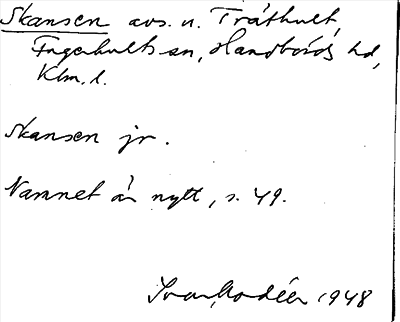 Skansen avs. u. Tråthult,
Fagerhults sn, Handbörds hd,
Klm. l.
Skansen jr.
Namnet är nytt, s. 49.
Ivar Modéer 1948